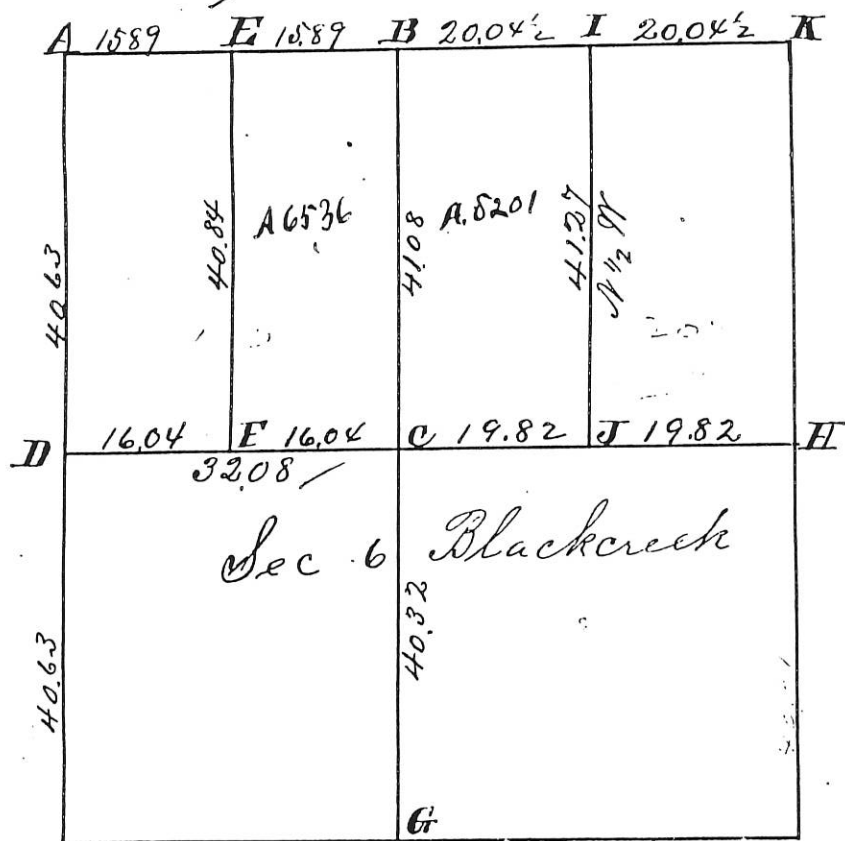 A 1589 E 15.89 B 20.04½ I 20.04½ K
40.63
40.84
A 6536
41.08
A. 8201
41.27
N ½ W
D 16.04 F 16.04 C 19.82 J 19.82 H
32.08
Sec. 6 Blackcreek
40.63
40.32
G